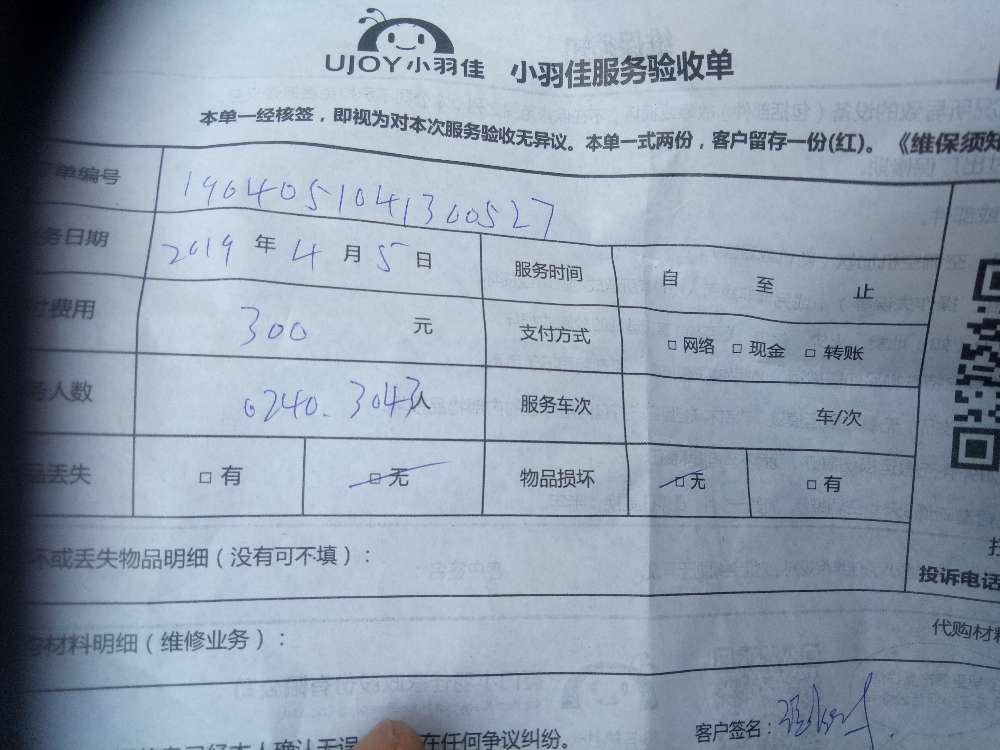 UJOY小羽佳 小羽佳服务验收单
本单一经核签，即视为对本次服务验收无异议。本单一式两份，客户留存一份(红)。《维保须知
单编号 1904051041300527
务日期 2019 年 4 月 5 日 服务时间 自 至 止
付费用 300 元 支付方式 □ 网络 □ 现金 □ 转账
务人数 0240.3043 人 服务车次 车/次
品丢失 □ 有 □ 无 物品损坏 □ 无 □ 有
坏或丢失物品明细（没有可不填）：
投诉电话
材料明细（维修业务）： 代购材料
客户签名：
已经本人确认无误 在任何争议纠纷。